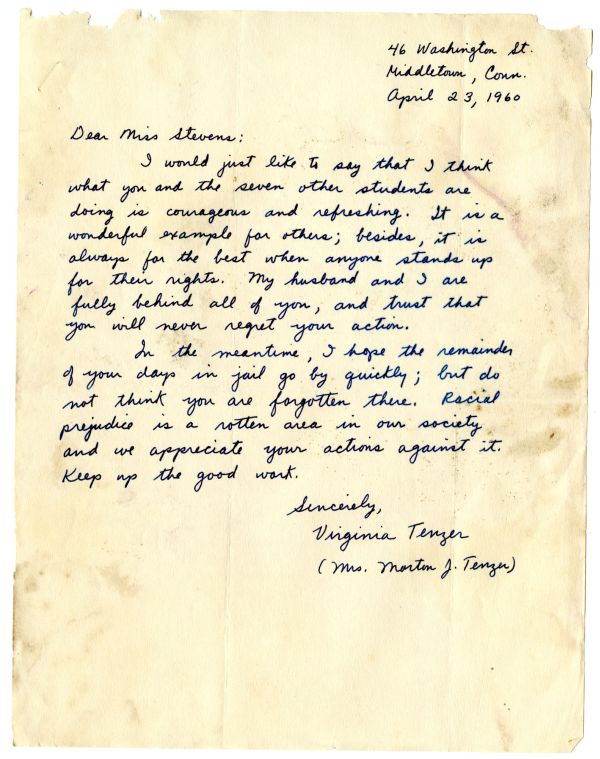 46 Washington St.
Middletown, Conn.
April 23, 1960
Dear Miss Stevens:
I would just like to say that I think
what you and the seven other students are
doing is courageous and refreshing. It is a
wonderful example for others; besides, it is
always for the best when anyone stands up
for their rights. My husband and I are
fully behind all of you, and trust that
you will never regret your action.
In the meantime, I hope the remainder
of your days in jail go by quickly; but do
not think you are forgotten there. Racial
prejudice is a rotten area in our society
and we appreciate your actions against it.
Keep up the good work.
Sincerely,
Virginia Tenzer
(Mrs. Morton J. Tenzer)